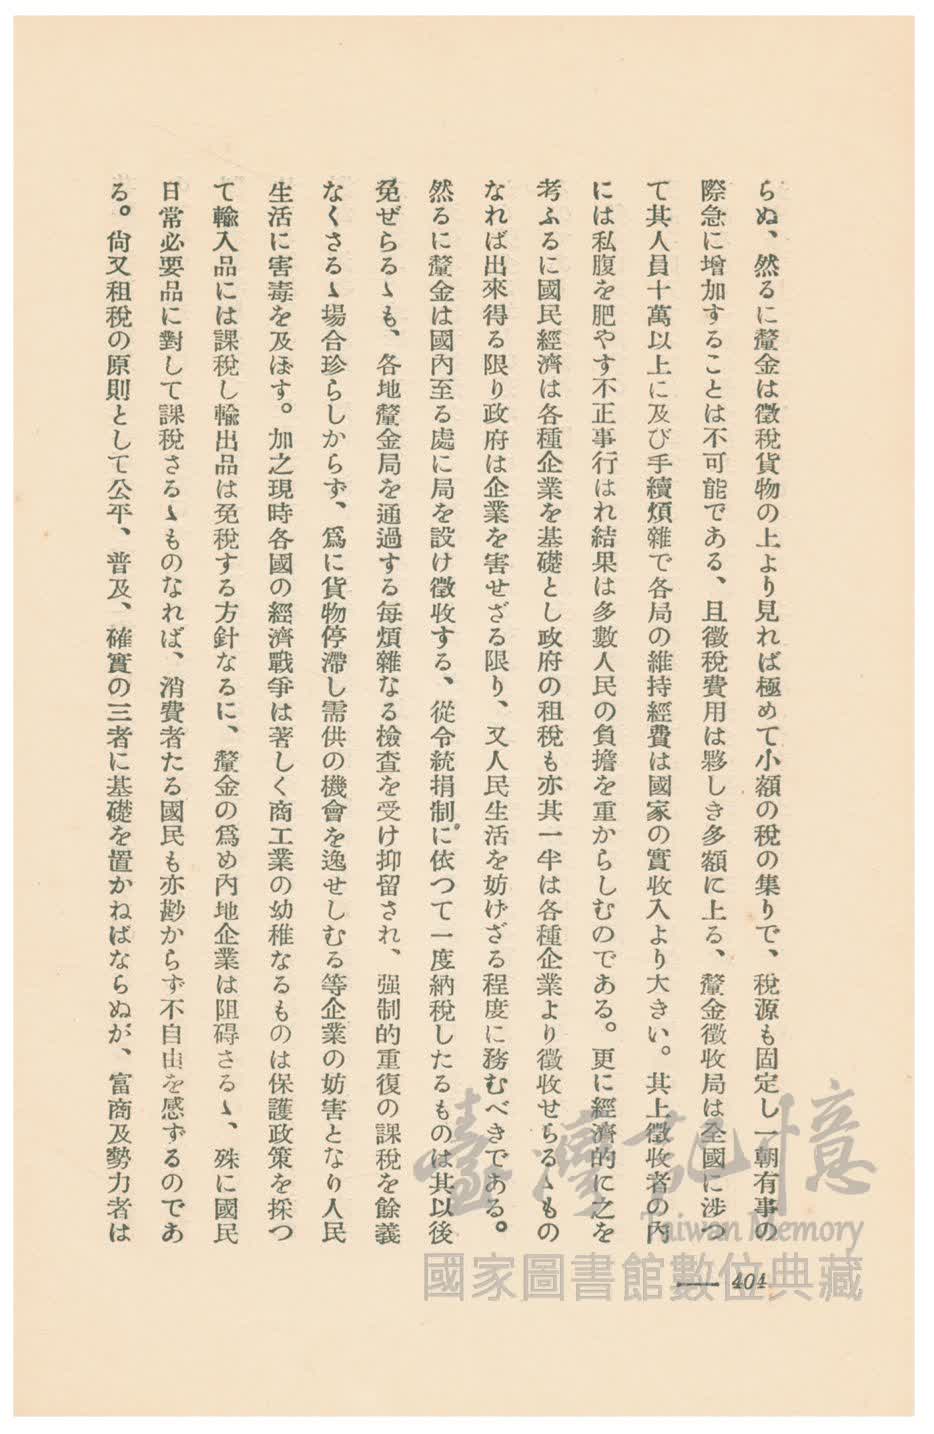 らぬ、然るに釐金は徵稅貨物の上より見れば極めて小額の稅の集りで、稅源も固定し一朝有事の
際急に增加することは不可能である、且徵稅費用は夥しき多額に上る、釐金徵收局は全國に涉つ
て其人員十萬以上に及び手續煩雜で各局の維持經費は國家の實收入より大きい。其上徵收者の內
には私腹を肥やす不正事行はれ結果は多數人民の負擔を重からしむのである。更に經濟的に之を
考ふるに國民經濟は各種企業を基礎とし政府の租稅も亦其一半は各種企業より徵收せらるゝもの
なれば出來得る限り政府は企業を害せざる限り、又人民生活を妨げざる程度に務むべきである。
然るに釐金は國內至る處に局を設け徵收する、從令統捐制に依つて一度納稅したるものは其以後
免ぜらるゝも、各地釐金局を通過する每煩雜なる檢查を受け抑留され、强制的重復の課稅を餘義
なくさるゝ場合珍らしからず、爲に貨物停滯し需供の機會を逸せしむる等企業の妨害となり人民
生活に害毒を及ぼす。加之現時各國の經濟戰爭は著しく商工業の幼稚なるものは保護政策を採つ
て輸入品には課稅し輸出品は免稅する方針なるに、釐金の爲め內地企業は阻碍さるゝ、殊に國民
日常必要品に對して課稅さるゝものなれば、消費者たる國民も亦尠からず不自由を感ずるのであ
る。尙又租稅の原則として公平、普及、確實の三者に基礎を置かねばならぬが、富商及勢力者は
臺灣記憶
Taiwan Memory
國家圖書館數位典藏
—— 404